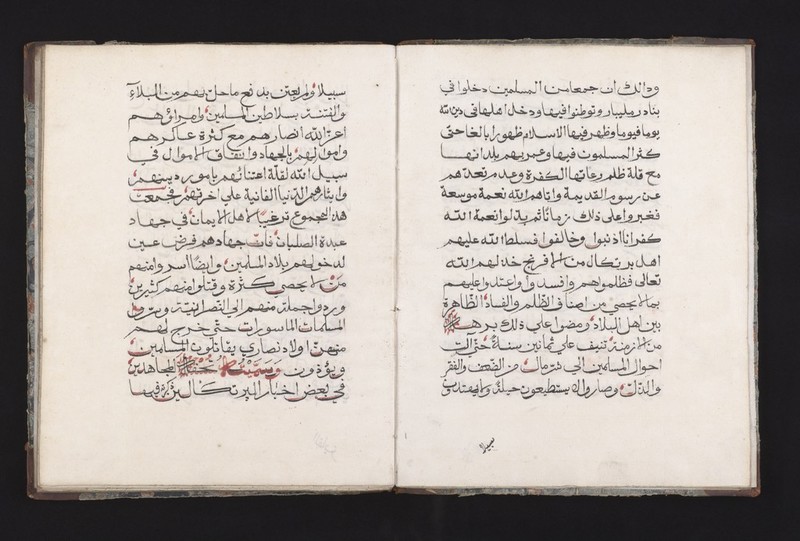 وذالك ان جمعا من المسلمين دخلوا في
بنادر مليبار وتوطنوا فيها ودخل اهلها في دين الله
يوما فيوما وظهر فيها الاسلام ظهورا بالغا حتى
كثر المسلمون فيها وعمر بهم بلدانها
مع قلة ظلم رعاتها الكفرة وعدم تعديهم
عن رسوم القديمة واتاهم الله نعمة موسعة
فغبروا على ذلك زمانا ثم بدلوا نعمة الله
كفرانا اذنبوا وخالفوا فسلط الله عليهم
اهل برتكال من الافرنج خذلهم الله
تعالى فظلموهم وافسدوا واعتدوا عليهم
بما لا يحصى من اصناف الظلم والفساد الظاهرة
بين اهل البلاد ومضوا على ذلك برهة
من الازمنة تنيف على ثمانين سنة حتى الت
احوال المسلمين الى شر مال من الضعف والفقر
والذل وصاروا لا يستطيعون حيلة ولا يهتدون
سبيلا
سبيلا ولم يعتن بدفع ما حل بهم من البلاء
والفتنة سلاطين المسلمين وامراؤهم
اعز الله انصارهم مع كثرة عساكرهم
واموالهم بالجهاد وانفاق الاموال في
سبيل الله لقلة اعتنائهم بامور دينهم
وايثارهم الدنيا الفانية على اخرتهم فجمعت
هذا المجموع ترغيبا لاهل الايمان في جهاد
عبدة الصلبان فان جهادهم فرض عين
لدخولهم بلاد المسلمين وايضا اسروا منهم
من لا يحصى كثرة وقتلوا منهم كثيرين
وردوا جملة منهم الى النصرانية
المسلمات الماسورات حتى خرج لهم
منهن اولاد نصارى يقاتلون المسلمين
ويؤذون وسميته تحفة المجاهدين
في بعض اخبار البرتكالين ذكر فيها